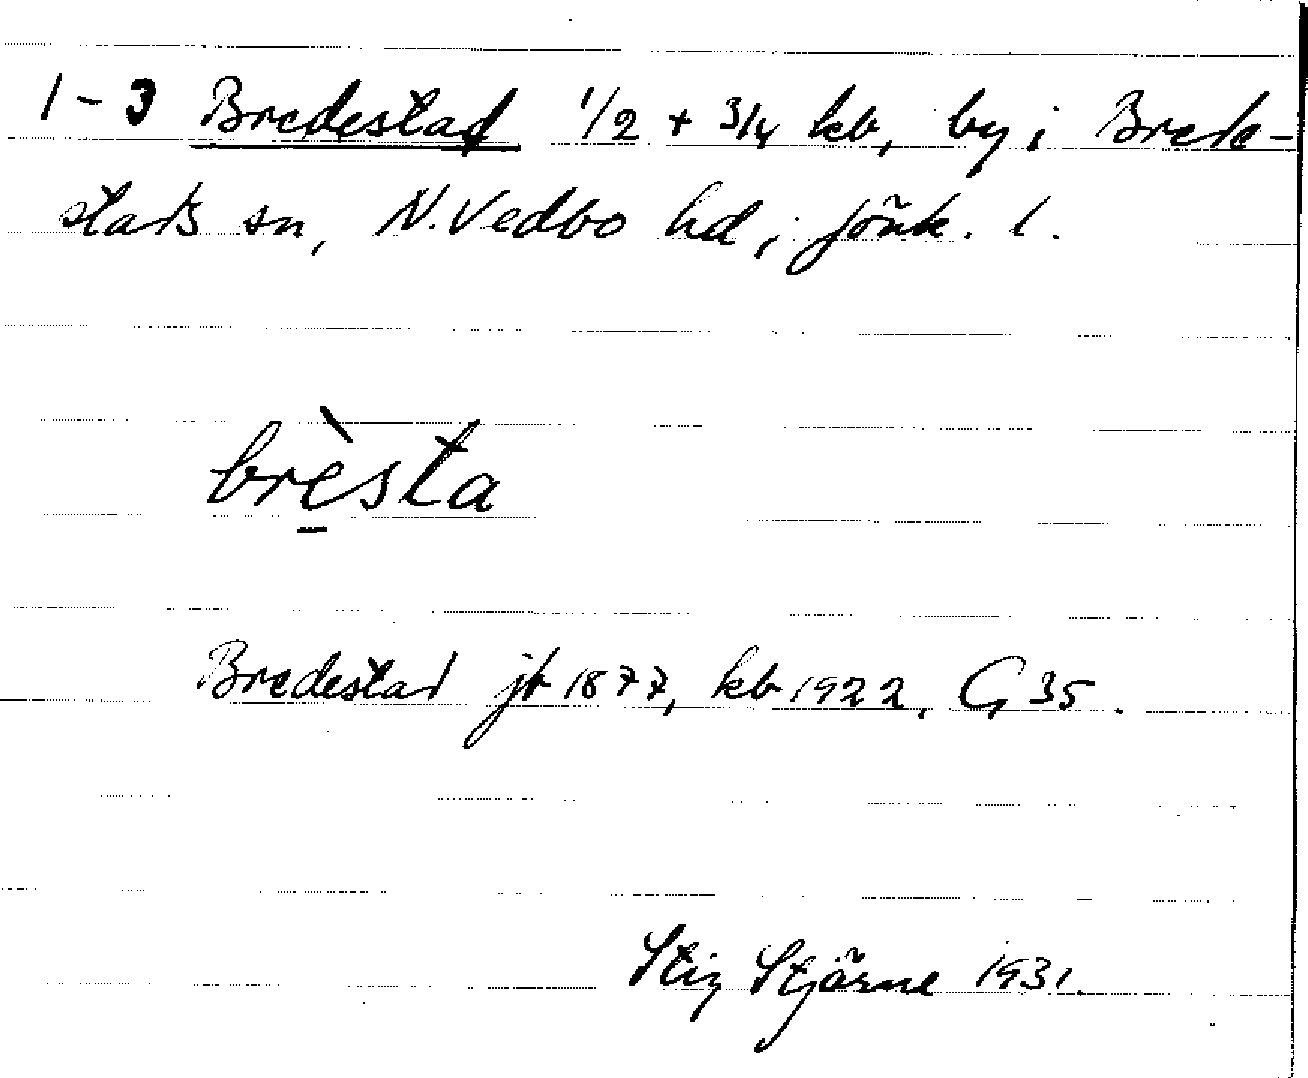 1-3 Bredestad 1/2 + 3/4 kb, by i Brede-
stads sn, N. Vedbo hd, Jönk. l.
brèsta
Bredestad jb 1877, kb 1922, G 35.
Stig Stjärne 1931.